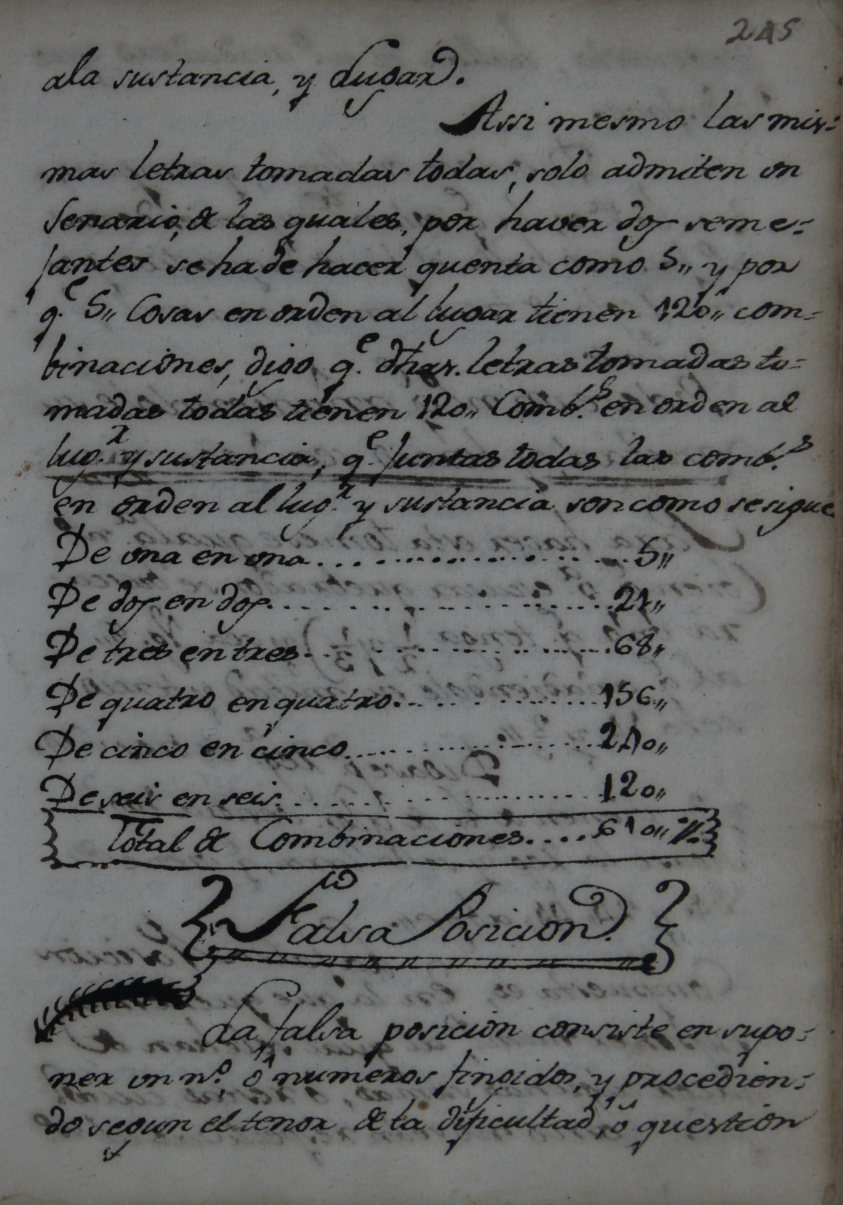 245
ala sustancia, y Lugar.
Assi mesmo las mis=
mas letras tomadas todas, solo admiten vn
Senario, de las quales, por haver dos seme=
jantes se ha de hacer quenta como 5,, y por
q.e 5,, Cosas en orden al lugar tienen 120,, com=
binaciones, digo q.e dhas. letras tomadas to=
madas todas tienen 120,, Comb.s en orden al
lug.r y sustancia, q.e juntas todas las comb.s
en orden al lug.r y sustancia son como se sigue
De vna en vna............5,,
De dos en dos............21,,
De tres en tres............68,,
De quatro en quatro............156,,
De cinco en cinco............240,,
De seis en seis............120,,
Total de Combinaciones....610,,
Falsa Posicion.
La falsa posicion consiste en supo=
ner vn n.o ó numeros fingidos, y procedien=
do segun el tenor de la dificultad, ó question